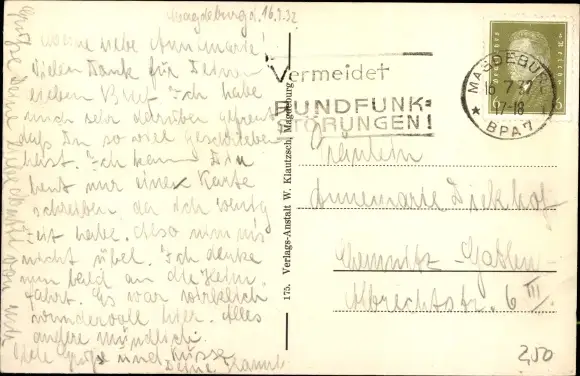 Magdeburg d. 16.7.32
Meine liebe Annemarie!
Vielen Dank für Deinen
lieben Brief. Ich habe
mich sehr darüber gefreut
daß Du so viel geschrieben
hast. Ich kann Dir
heut nur eine Karte
schreiben, da ich wenig
Zeit habe. Also nimm's
nicht übel. Ich denke
nun bald an die Heim-
fahrt. Es war wirklich
wundervoll hier. Alles
andere mündlich.
Viele Grüße und Küsse
Deine
Grüße Deine von mir
175. Verlags-Anstalt W. Klautzsch, Magdeburg
Vermeidet
RUNDFUNK-
STÖRUNGEN!
MAGDEBURG
16.7.32
17-18
★ BPA 7
Deutsches Reich
6 6
Fräulein
Annemarie Dickhof
Chemnitz-Gablenz
Albrechtstr. 6 III.
2,50